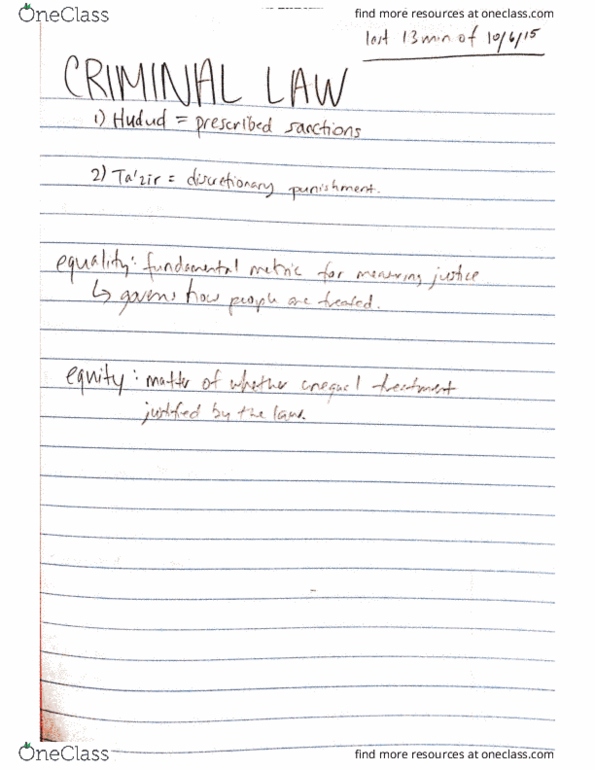 OneClass
find more resources at oneclass.com
last 13 min of 10/6/15
CRIMINAL LAW
1) Hudud = prescribed sanctions
2) Ta'zir = discretionary punishment.
equality: fundamental metric for measuring justice
↳ governs how people are treated.
equity: matter of whether unequal treatment
justified by the laws.
OneClass
find more resources at oneclass.com